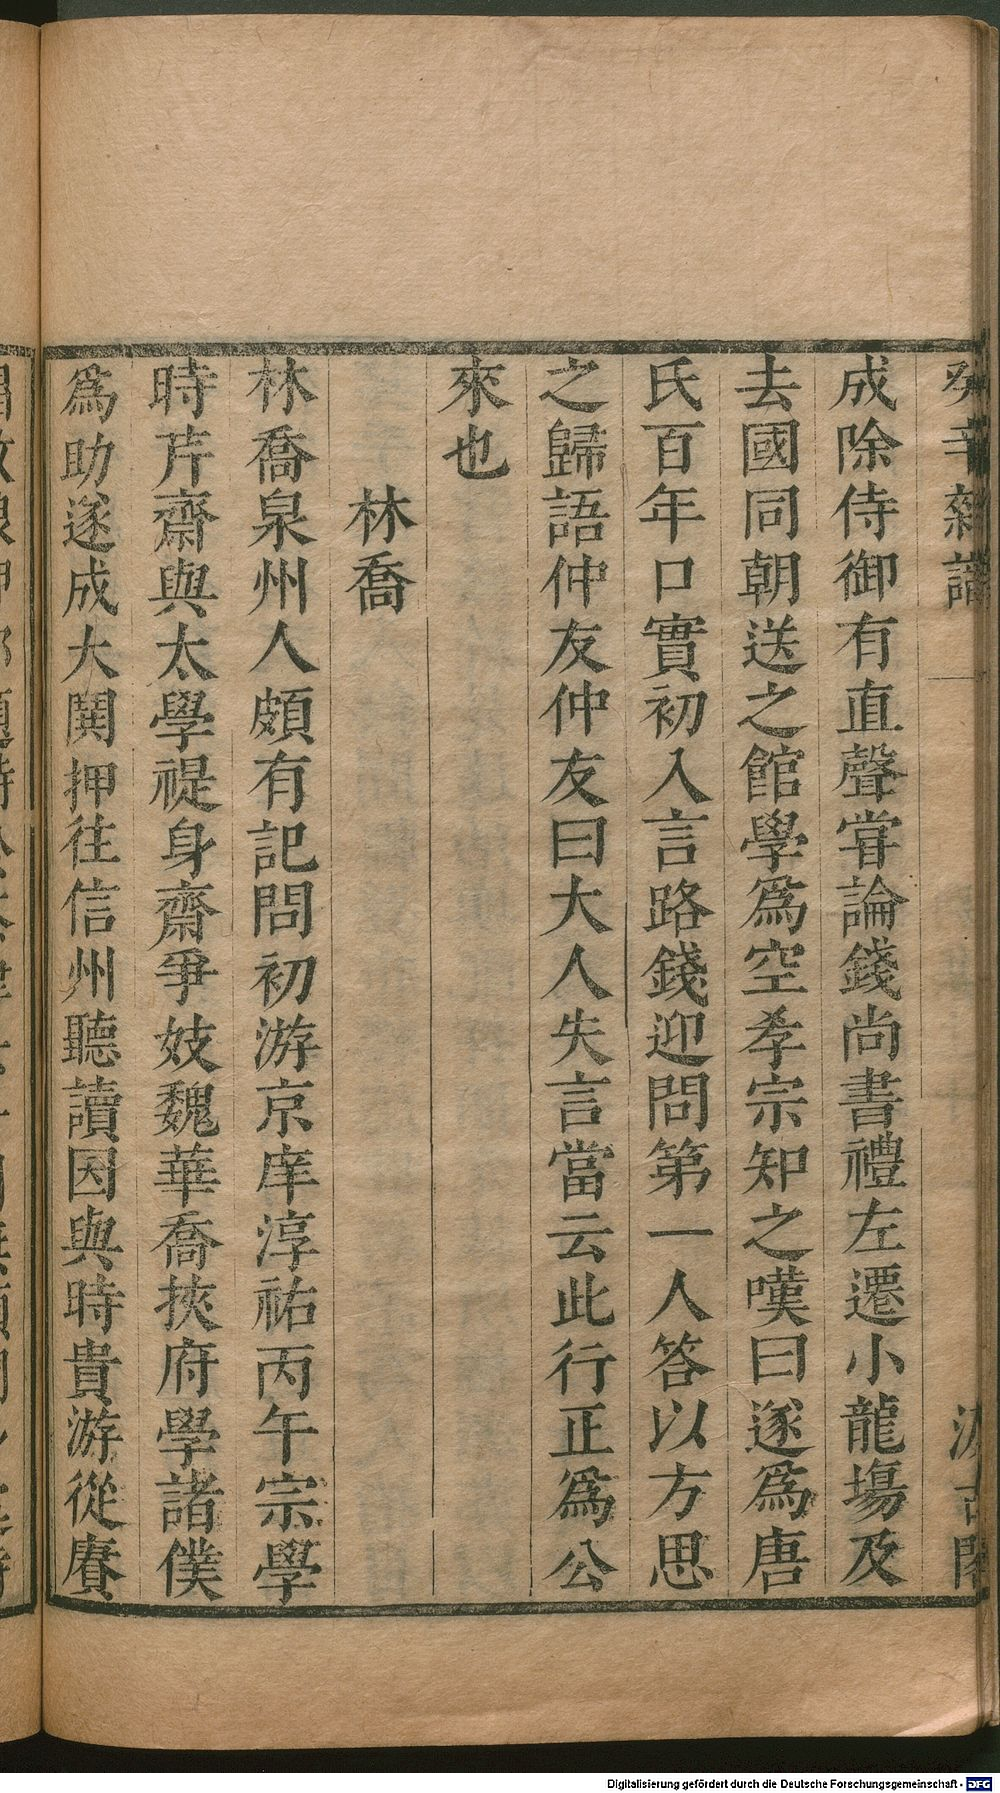 癸辛雜識
汲古閣
成除侍御有直聲甞論錢尚書禮左遷小龍塲及
去國同朝送之館學爲空孝宗知之嘆曰遂爲唐
氏百年口實初入言路錢迎問第一人答以方思
之歸語仲友仲友曰大人失言當云此行正爲公
來也
林喬
林喬泉州人頗有記問初游京庠淳祐丙午宗學
時芹齋與太學禔身齋爭妓魏華喬挾府學諸僕
爲助遂成大鬨押往信州聽讀因與時貴游從賡
Digitalisierung gefördert durch die Deutsche Forschungsgemeinschaft - DFG